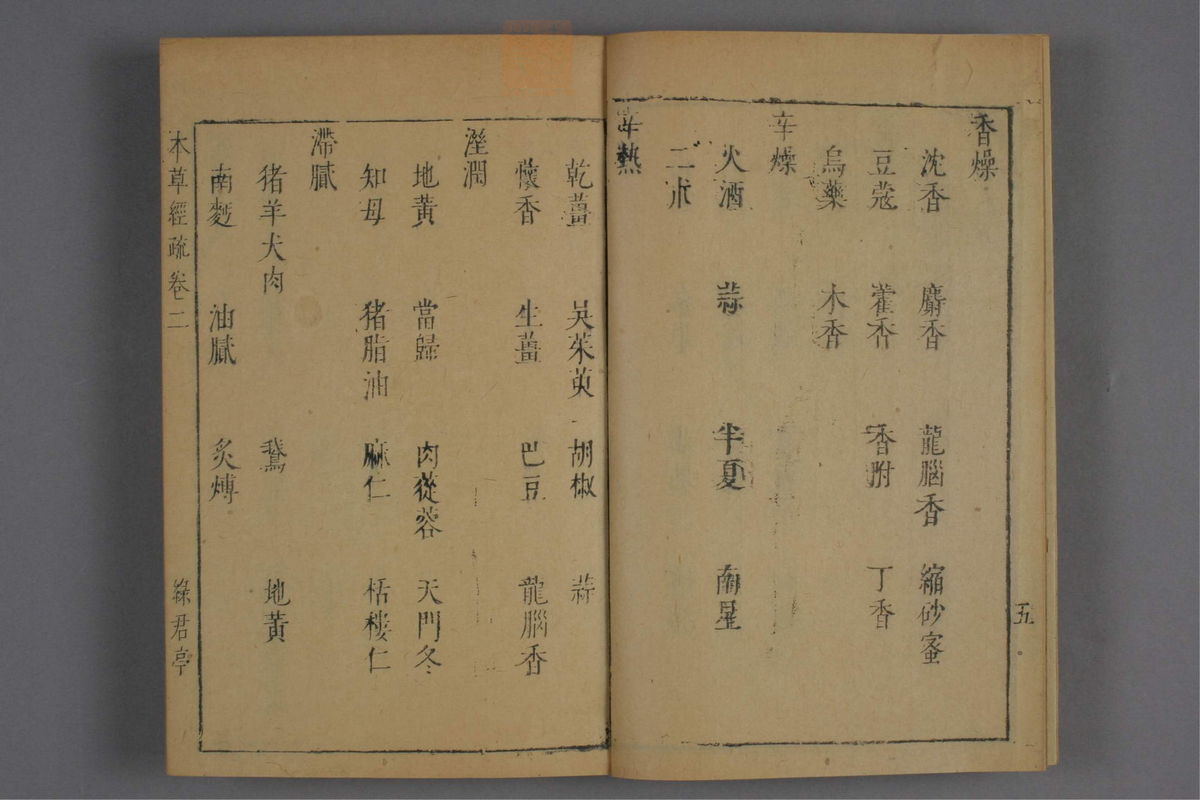 香燥
沈香 麝香 龍腦香 縮砂蜜
豆蔻 藿香 香附 丁香
烏藥 木香
辛燥
火酒 蒜 半夏 南星
二朮
辛熱
五
乾薑 吳茱萸 胡椒 蒜
懷香 生薑 巴豆 龍腦香
溼潤
地黃 當歸 肉蓯蓉 天門冬
知母 猪脂油 麻仁 栝樓仁
滯膩
猪羊犬肉 鵞 地黃
南麪 油膩 炙煿
本草經疏 卷二 綠君亭